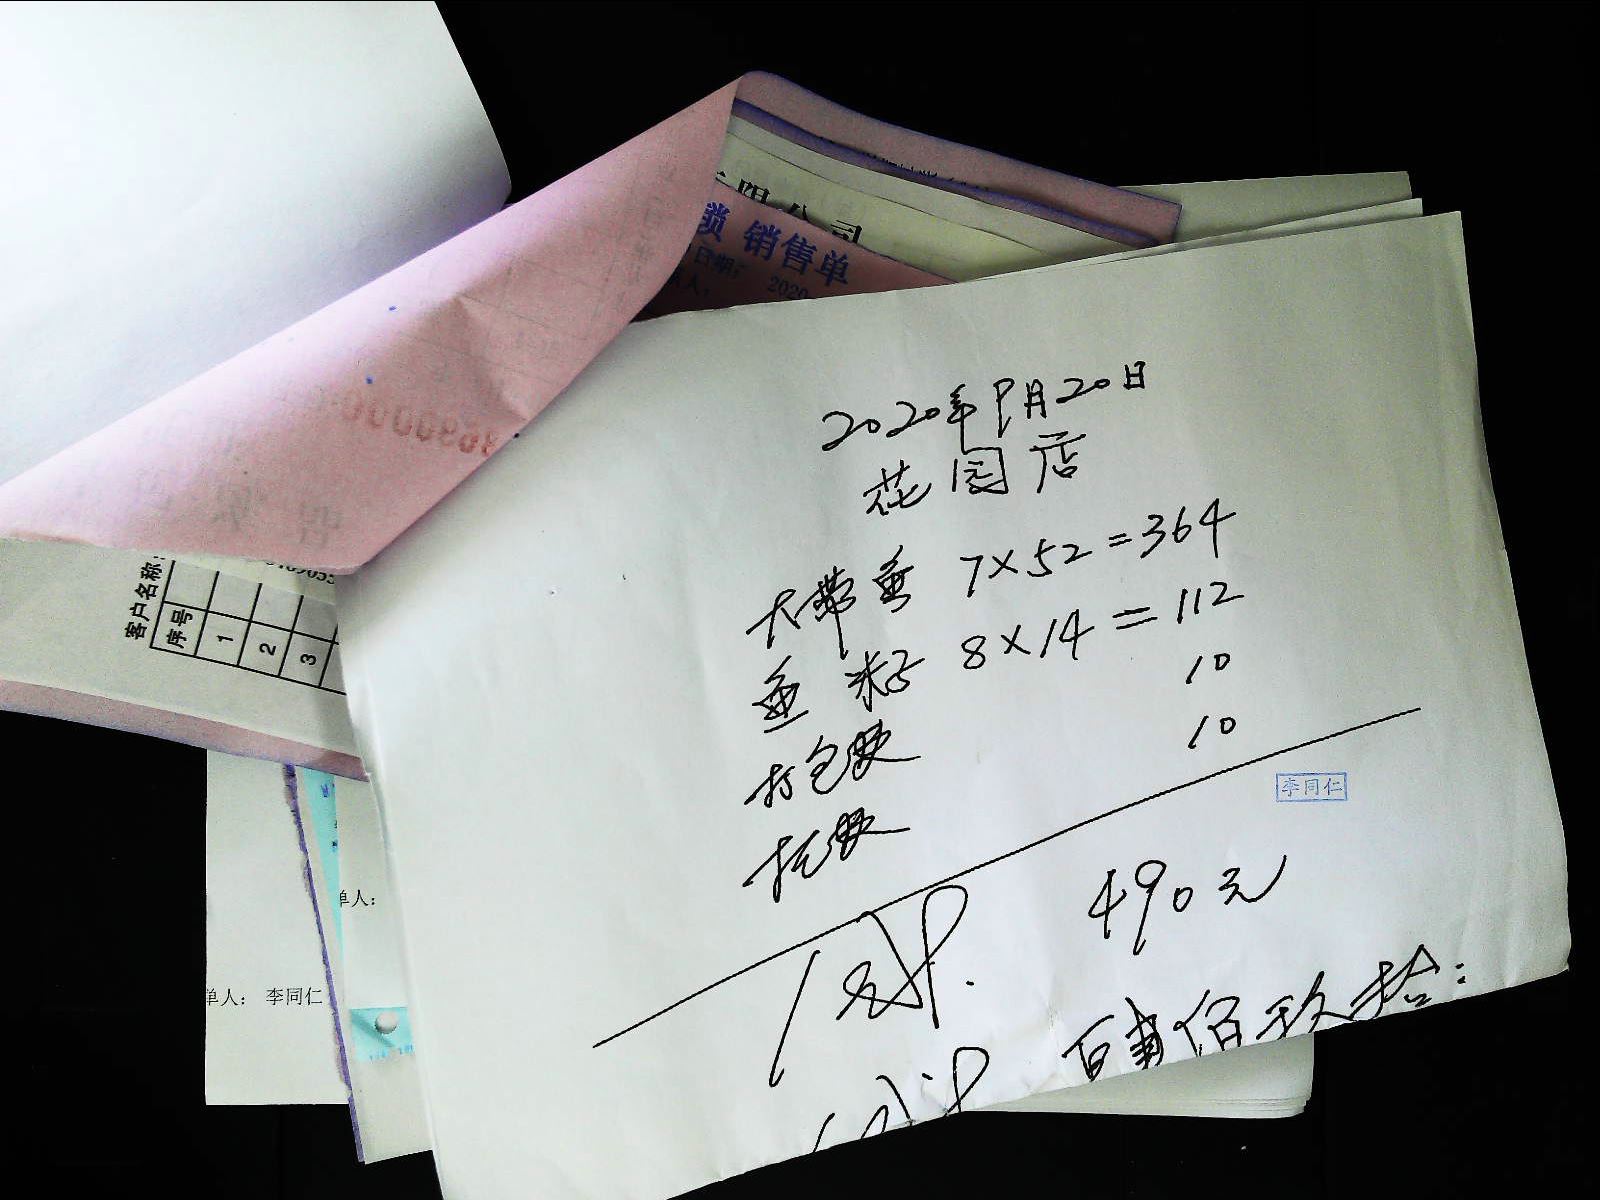 限公司
锁 销售单
日期: 2020
人:
0000898
客户名称:
序号
1
2
3
2020年8月20日
花园店
大带鱼 7×52=364
鱼籽 8×14=112
打包费 10
托费 10
李同仁
490元
肆佰玖拾
单人:
单人: 李同仁